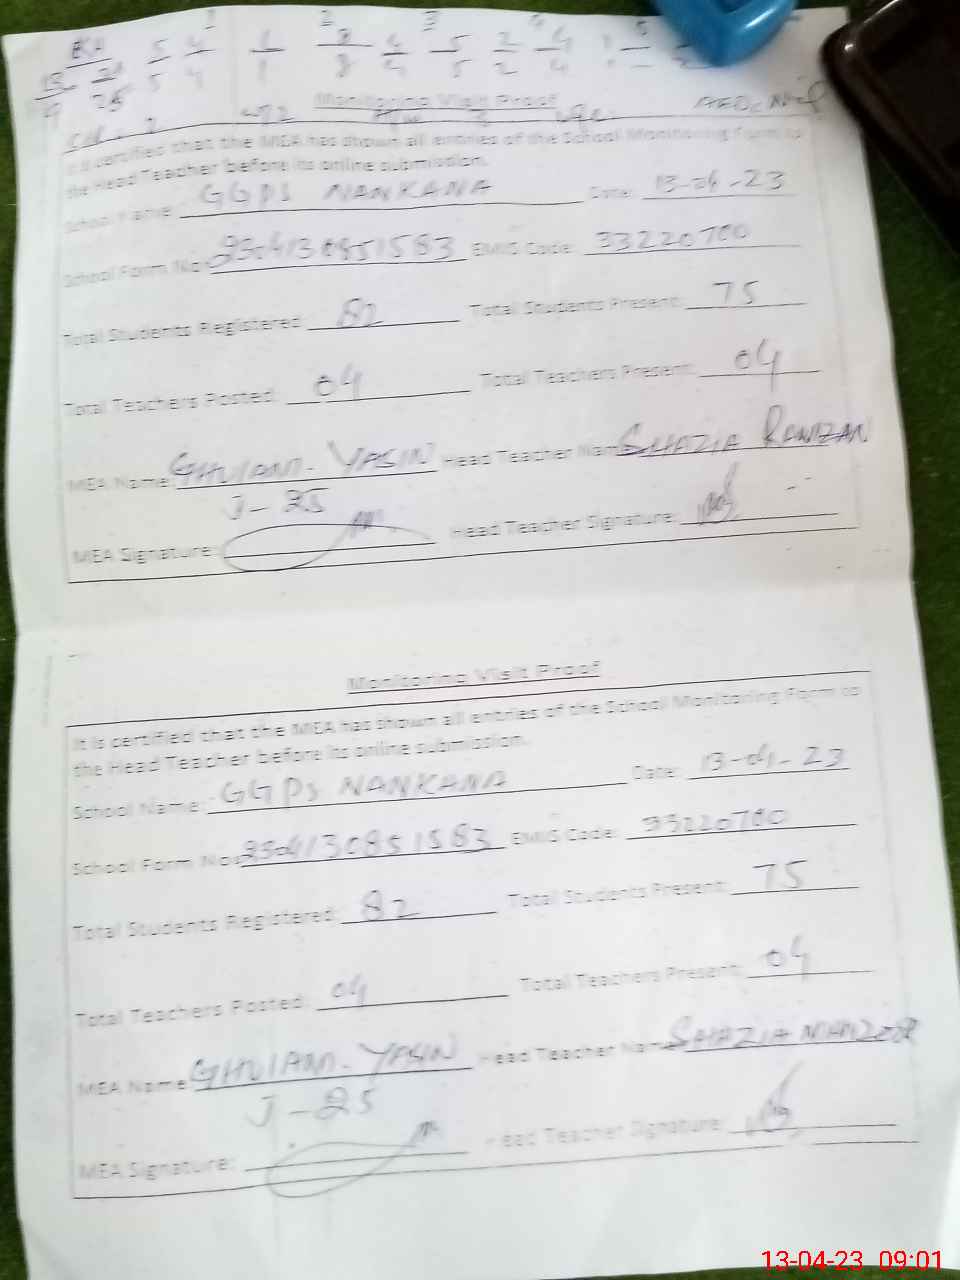 1 2 3 4 5
5 4 1 8 4 5 2 4
5 4 1 8 4 5 2 4
Monitoring Visit Proof
It is certified that the MEA has shown all entries of the School Monitoring Form to
the Head Teacher before its online submission.
School Name: GGPS NANKANA Date: 13-04-23
School Form No: EMIS Code: 33220700
Total Students Registered: 82 Total Students Present: 75
Total Teachers Posted: 04 Total Teachers Present: 04
MEA Name: GHULAM-YASIN Head Teacher Name: SHAZIA RAMZAN
J-25
MEA Signature: Head Teacher Signature:
Monitoring Visit Proof
It is certified that the MEA has shown all entries of the School Monitoring Form to
the Head Teacher before its online submission.
School Name: GGPS NANKANA Date: 13-04-23
School Form No: EMIS Code: 33220700
Total Students Registered: 82 Total Students Present: 75
Total Teachers Posted: 04 Total Teachers Present: 04
MEA Name: GHULAM-YASIN Head Teacher Name: SHAZIA MANZOOR
J-25
MEA Signature: Head Teacher Signature:
13-04-23 09:01